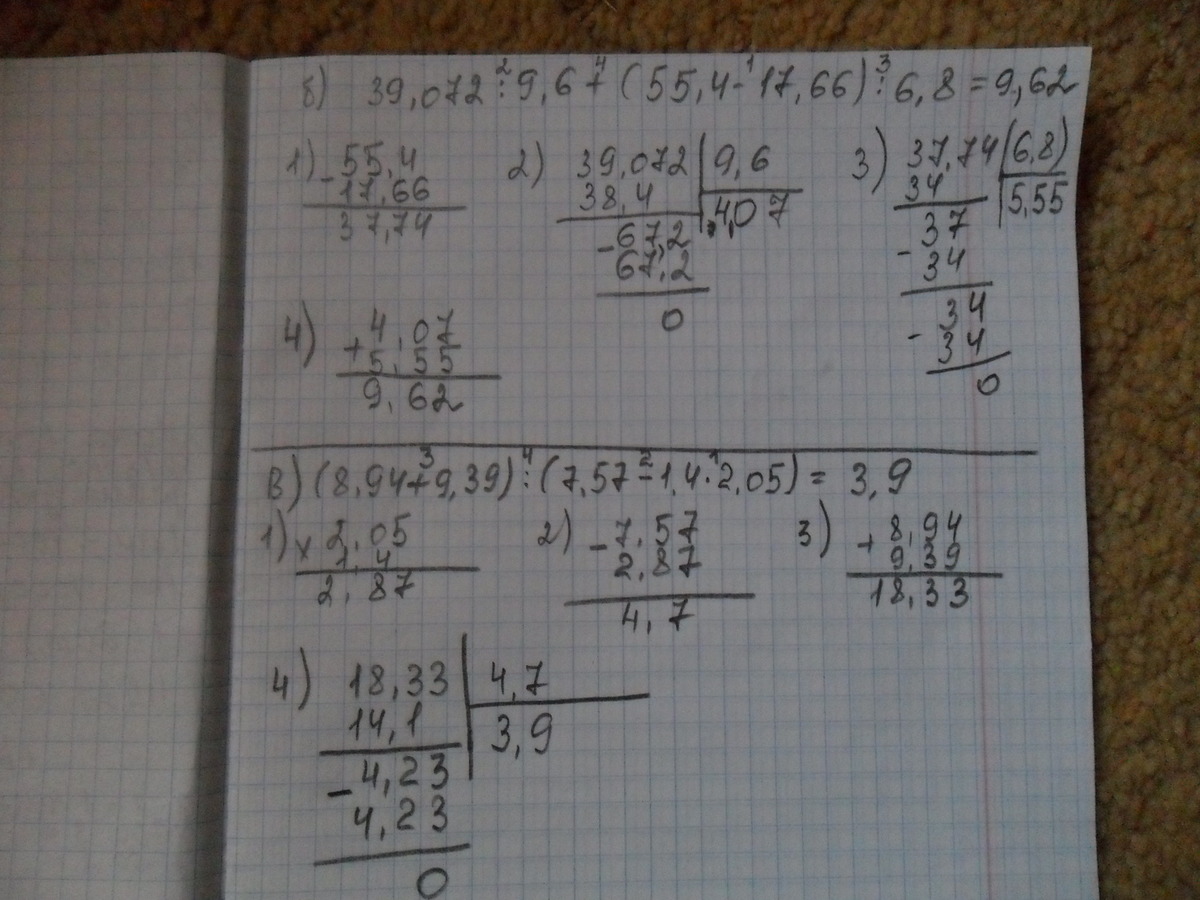 б) 39,072 : 9,6 + (55,4 - 17,66) : 6,8 = 9,62
2 4 1 3
1) - 55,4
17,66
37,74
2) 39,072 | 9,6
38,4 | 4,07
- 67,2
67,2
0
3) 37,74 | (6,8)
34 | 5,55
- 37
34
- 34
34
0
4) + 4,07
5,55
9,62
в) (8,94 + 9,39) : (7,57 - 1,4 · 2,05) = 3,9
3 4 2 1
1) x 2,05
1,4
2,87
2) - 7,57
2,87
4,7
3) + 8,94
9,39
18,33
4) 18,33 | 4,7
14,1 | 3,9
- 4,23
4,23
0